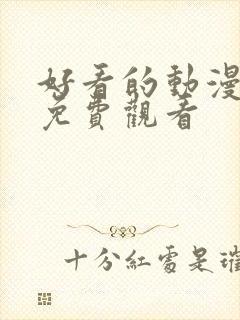 好看的動漫
免費觀看
十分紅處是璀